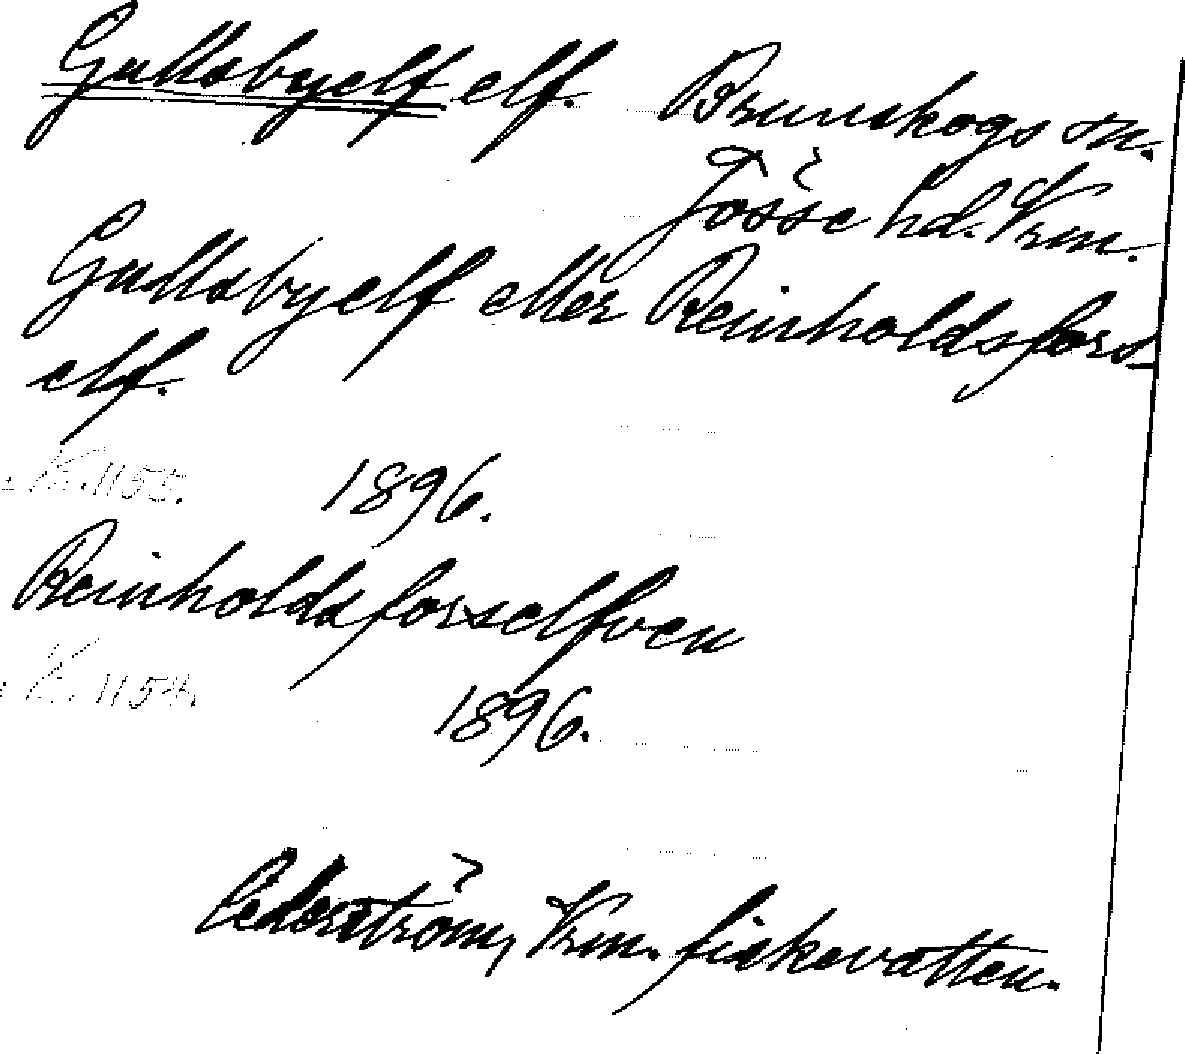 Gullsbyelf elf. Brunskogs sn.
Jösse hd. Vrm.
Gullsbyelf eller Reinholdsfors-
elf.
K. 1155. 1896.
Reinholdsforselfven
K. 1154.
1896.
Cederström, Vrm. fiskevatten.